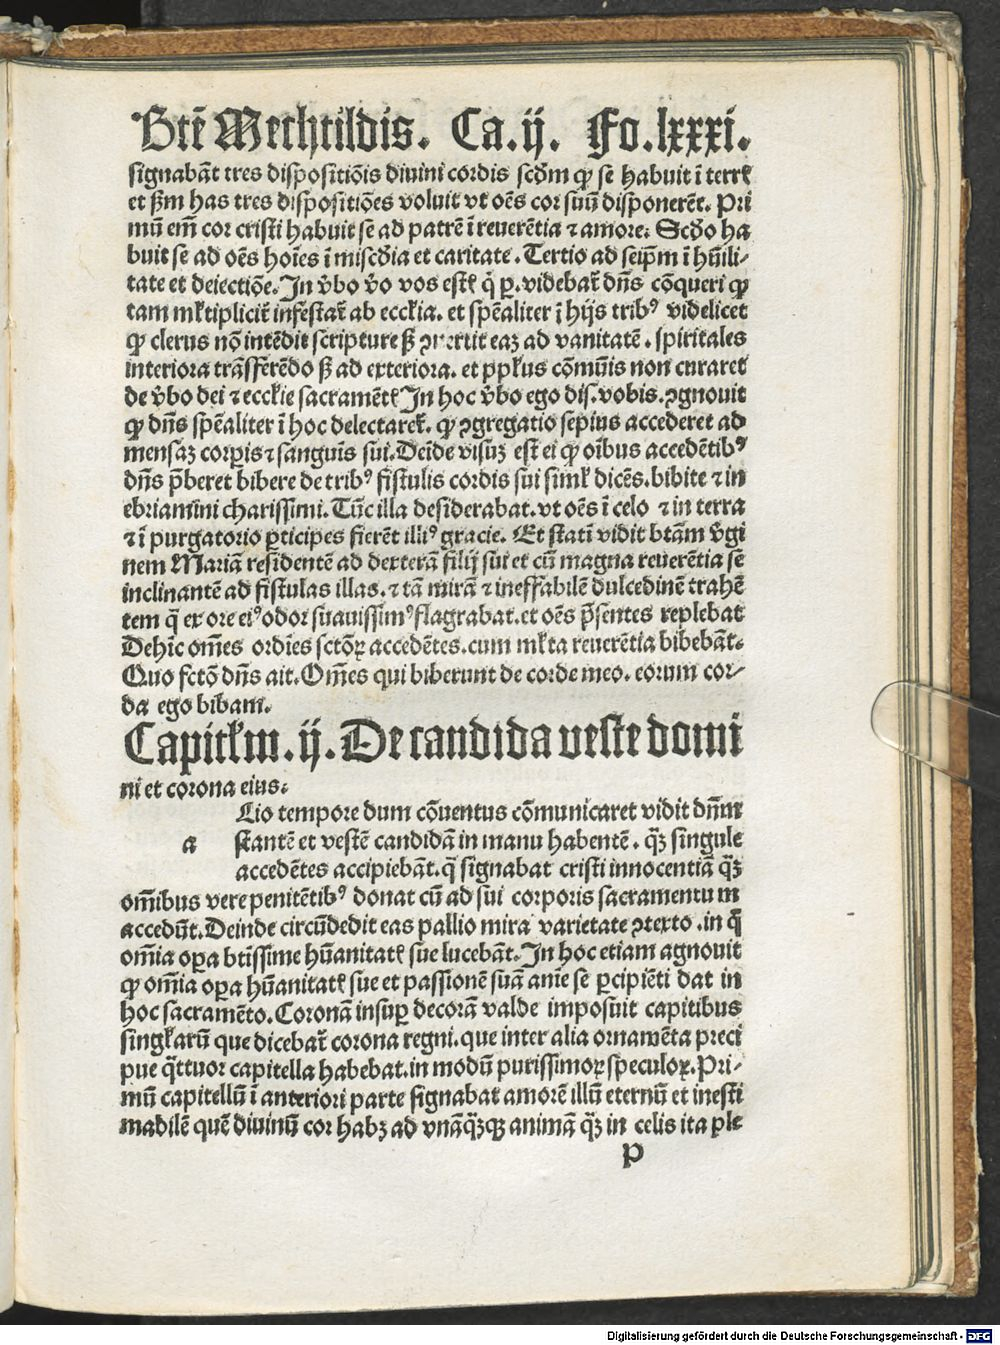 Btē Mechtildis. Ca.ij. Fo.lxxxi.
signabāt tres dispositiōis diuini cordis scḋm qꝙ se habuit ī terrꝭ
et ẜm has tres dispositiōes voluit vt oēs cor suū disponerēt. Pri
mū em̄ cor cristi habuit se ad patrē ī reuerētia ⁊ amore. Scḋo ha
buit se ad oēs hoīes ī miscḋia et caritate. Tertio ad seip̄m ī hūili-
tate et deiectiōe. In v̓bo v̓o vos estꝭ q̇ ꝑ. videbat᷑ dn̄s cōqueri ꝙ
tam ml̓tiplicit᷑ infestat᷑ ab eccl̓ia. et spēaliter ī hijs tribꝰ videlicet
ꝙ clerus nō intēdit scripture ẜꝫ ꝯuertit eaꝫ ad vanitatē. spiritales
interiora trāsferēdo ẜꝫ ad exteriora. et ppl̓us cōmūis non curaret
de v̓bo dei ⁊ eccl̓ie sacramētꝭ In hoc v̓bo ego dis. vobis. ꝯgnouit
ꝙ dn̄s spēaliter ī hoc delectaret᷑. ꝙ ꝯgregatio sepius accederet ad
mensaꝫ corꝑis ⁊ sanguīs sui. Deīde visuꝫ est ei ꝙ oībus accedētibꝰ
dn̄s p̄beret bibere de tribꝰ fistulis cordis sui siml̓ dicēs. bibite ⁊ in
ebriamini charissimi. Tūc illa desiderabat. vt oēs ī celo ⁊ in terra
⁊ ī purgatorio ꝑticipes fierēt illiꝰ gracie. Et statī vidit btām v̓gi
nem Mariā residentē ad dexterā filij sui et cū magna reuerētia se
inclinantē ad fistulas illas. ⁊ tā mirā ⁊ ineffabilē dulcedinē trahē
tem ꝙ̄ ex ore eiꝰ odor suauissimꝰ flagrabat. et oēs p̄sentes replebat
Dehīc om̄es ordīes sctōꝝ accedētes. cum ml̓ta reuerētia bibebāt.
Quo fctō dn̄s ait. Om̄es qui biberunt de corde meo. eorum cor-
da ego bibam.
Capitl̓m. ij. De candida veste domi
ni et corona eius.
Lio tempore dum cōuentus cōmunicaret vidit dn̄m
a stantē et vestē candidā in manu habentē. qꝫ̄ singule
accedētes accipiebāt. q̄ signabat cristi innocentiā qꝫ̄
om̄ibus vere penitētibꝰ donat cū ad sui corporis sacramentum
accedūt. Deinde circūdedit eas pallio mira varietate ꝯtexto. in q̄
om̄ia oꝑa btīssime hūanitatꝭ sue lucebāt. In hoc etiam agnouit
ꝙ om̄ia oꝑa hūanitatꝭ sue et passionē suā anīe se ꝑcipiēti dat in
hoc sacramēto. Coronā insuꝑ decorā valde imposuit capitibus
singl̓arū que dicebat᷑ corona regni. que inter alia ornamēta preci
pue q̇ttuor capitella habebat. in modū purissimoꝝ speculoꝝ. Pri-
mū capitellū ī anteriori parte signabat amorē illū eternū et inesti
mabilē quē diuinū cor habꝫ ad vnāqꝫ̄qꝫ animā qꝫ̄ in celis ita ꝑle
p
Digitalisierung gefördert durch die Deutsche Forschungsgemeinschaft - DFG